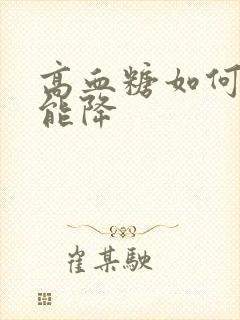 高血糖如何
能降
崔某駛